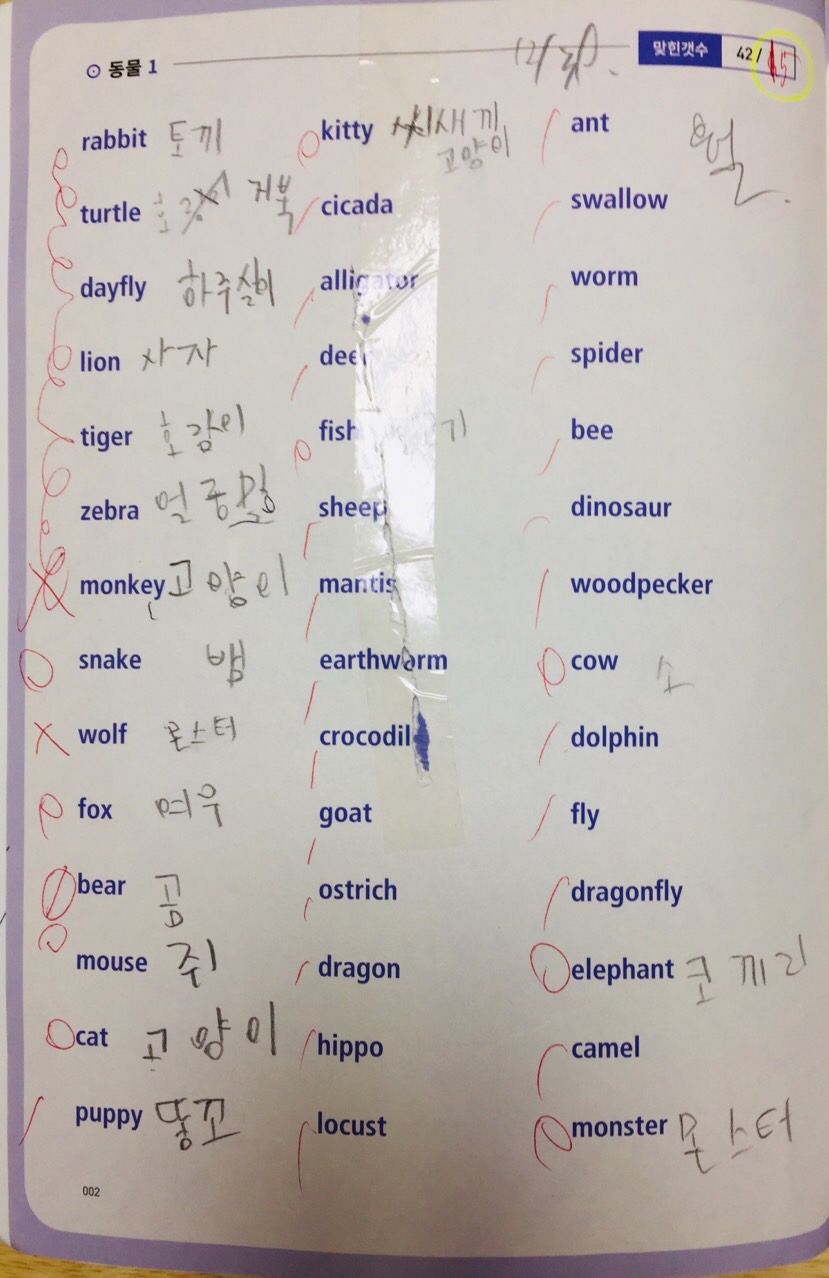 동물 1
맞힌갯수 42/ 15
rabbit 토끼
turtle 거북
dayfly 하주살이
lion 사자
tiger 호랑이
zebra 얼룽말
monkey 고양이
snake 뱀
wolf 몬스터
fox 여우
bear 곰
mouse 쥐
cat 고양이
puppy 똥꼬
kitty 새끼
고양이
cicada
alligator
deer
fish 기
sheep
mantis
earthworm
crocodil
goat
ostrich
dragon
hippo
locust
ant
swallow
worm
spider
bee
dinosaur
woodpecker
cow 소
dolphin
fly
dragonfly
elephant 코끼리
camel
monster 몬스터
002